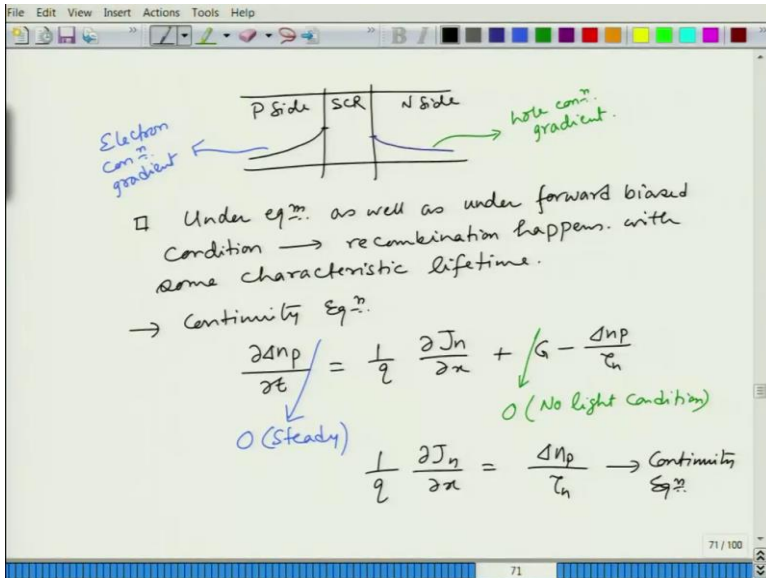 File Edit View Insert Actions Tools Help
P Side SCR N Side
Electron conⁿ. gradient
hole conⁿ. gradient.
Under eqᵐ. as well as under forward biased
condition → recombination happens. with
some characteristic lifetime.
→ Continuity Eqⁿ.
∂Δnp/∂t = 1/q ∂Jn/∂x + G − Δnp/τn
0 (Steady)
0 (No light Condition)
1/q ∂Jn/∂x = Δnp/τn → Continuity Eqⁿ.
71 / 100
71